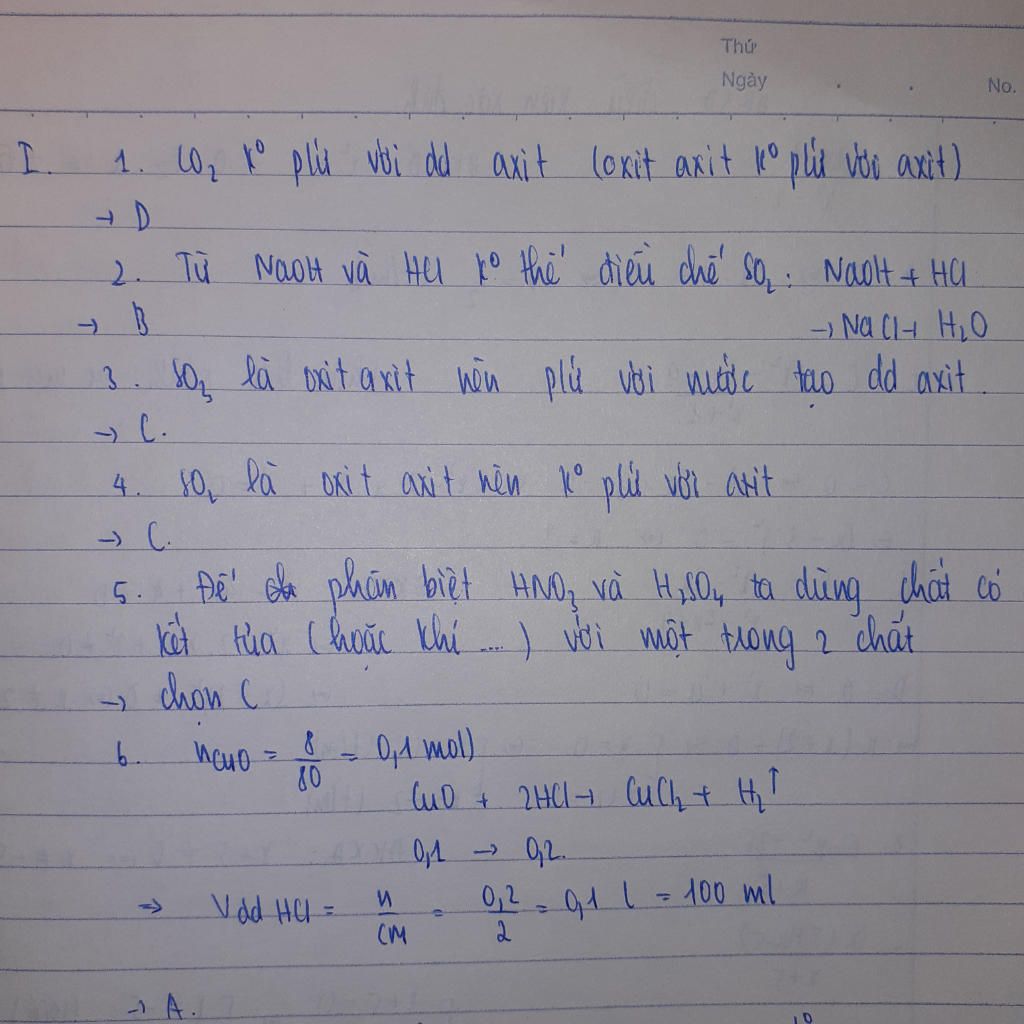 Thứ
Ngày
No.
I. 1. CO2 Kº pứ với dd axit (oxit axit Kº pứ với axit)
→ D
2. Từ NaOH và HCl Kº thể điều chế SO2 : NaOH + HCl
→ B → NaCl + H2O
3. SO3 là oxit axit nên pứ với nước tạo dd axit.
→ C.
4. SO2 là oxit axit nên Kº pứ với axit
→ C.
5. Để phân biệt HNO3 và H2SO4 ta dùng chất có
kết tủa (hoặc khí ....) với một trong 2 chất
→ chọn C
6. nCuO = 8/80 = 0,1 mol)
CuO + 2HCl → CuCl2 + H2↑
0,1 → 0,2.
⇒ Vdd HCl = n/CM = 0,2/2 = 0,1 l = 100 ml
→ A.